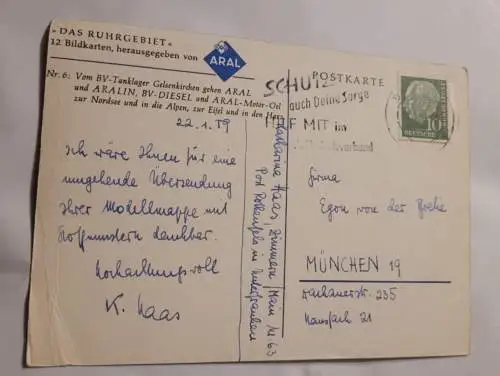 »DAS RUHRGEBIET«
12 Bildkarten, herausgegeben von
ARAL
Nr. 6: Vom BV-Tanklager Gelsenkirchen gehen ARAL
und ARALIN, BV-DIESEL und ARAL-Motor-Oel
zur Nordsee und in die Alpen, zur Eifel und in den Harz
22.1.59
Ich wäre Ihnen für eine
umgehende Übersendung
Ihrer Modellmappe mit
Stoffmustern dankbar.
Hochachtungsvoll
K. Haas
Katharina Haas, Zimmern/Main
Post Rothenfels in Unterfranken
POSTKARTE
SCHUTZ
auch Deine Sorge
HILF MIT im
10
DEUTSCHE
Firma
Egon von der
MÜNCHEN 19
Dachauerstr. 235
21